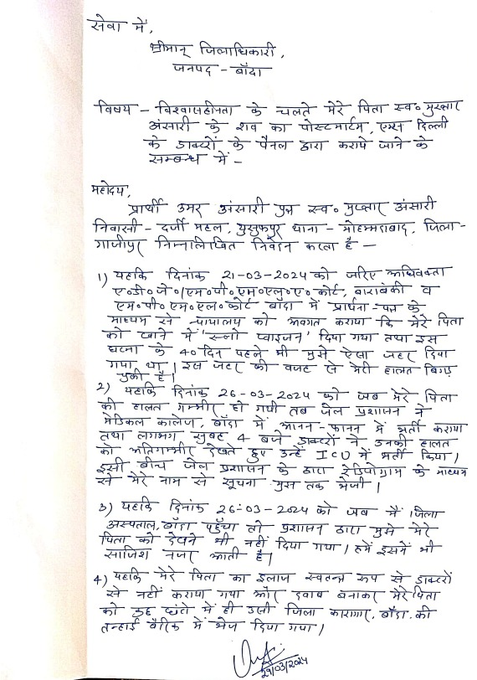 सेवा में,
श्रीमान् जिलाधिकारी,
जनपद - बाँदा
विषय - विश्वासहीनता के चलते मेरे पिता स्व० मुख्तार
अंसारी के शव का पोस्टमार्टम, एम्स दिल्ली
के डाक्टरों के पैनल द्वारा कराये जाने के
सम्बन्ध में -
महोदय,
प्रार्थी उमर अंसारी पुत्र स्व० मुख्तार अंसारी
निवासी - दर्जी महल, युसुफपुर थाना - मोहम्मदाबाद, जिला-
गाजीपुर निम्नलिखित निवेदन करता है -
1) यहकि दिनांक 21-03-2024 को जरिए अधिवक्ता
ए०डी०जे०/एम०पी०एम०एल०ए० कोर्ट, बाराबंकी व
एम०पी०एम०एल० कोर्ट बाँदा में प्रार्थना-पत्र के
माध्यम से न्यायालय को अवगत कराया कि मेरे पिता
को खाने में 'स्लो प्वाइजन' दिया गया तथा इस
घटना के 40 दिन पहले भी मुझे ऐसा जहर दिया
गया था। इस जहर की वजह से मेरी हालत बिगड़
चुकी है।
2) यहकि दिनांक 26-03-2024 को जब मेरे पिता
की हालत गम्भीर हो गयी तब जेल प्रशासन ने
मेडिकल कालेज, बाँदा में आनन-फानन में भर्ती कराया
तथा लगभग सुबह 4 बजे डाक्टरों ने उनकी हालत
को अतिगम्भीर देखते हुए उन्हें ICU में भर्ती किया।
इसी बीच जेल प्रशासन के द्वारा रेडियोग्राम के माध्यम
से मेरे नाम से सूचना मुझ तक भेजी।
3) यहकि दिनांक 26-03-2024 को जब मैं जिला
अस्पताल, बाँदा पहुँचा तो प्रशासन द्वारा मुझे मेरे
पिता को देखने भी नहीं दिया गया। हमें इसमें भी
साजिश नजर आती है।
4) यहकि मेरे पिता का इलाज स्वतन्त्र रूप से डाक्टरों
से नहीं कराया गया और दबाव बनाकर मेरे पिता
को कुछ घंटे में ही उसी जिला कारागार, बाँदा की
तन्हाई बैरिक में भेज दिया गया।
29/03/2024